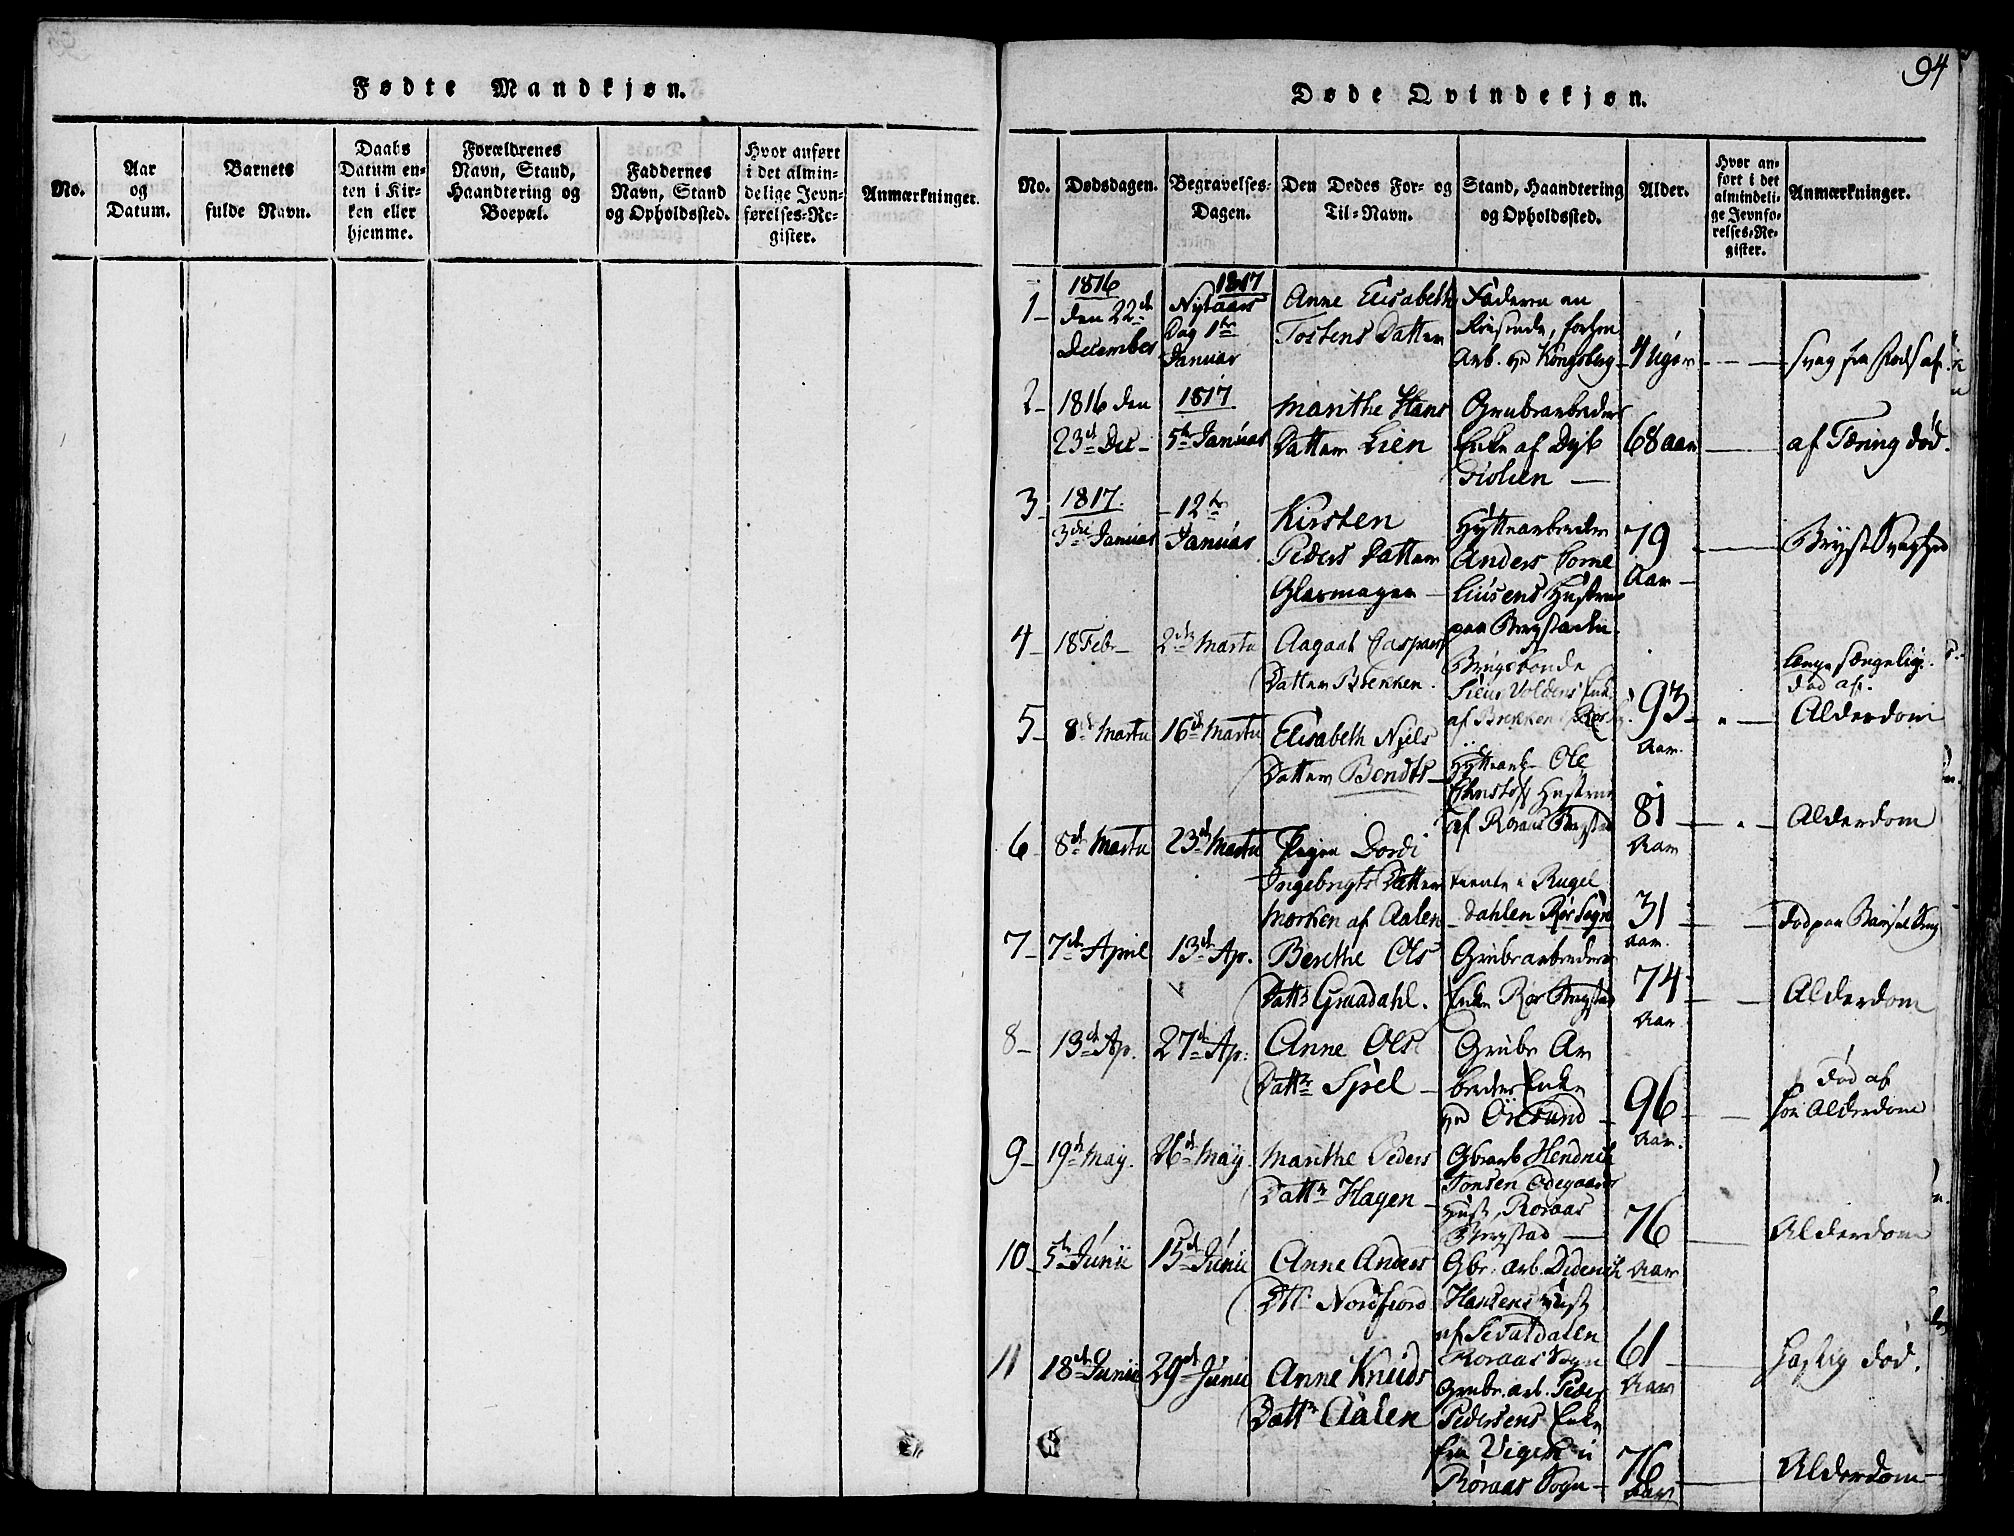 Fødte Mandkjøn.
No.
Aar
og
Datum.
Barnets
fulde Navn.
Daabs
Datum en-
ten i Kir-
ken eller
hjemme.
Forældrenes
Navn, Stand,
Haandtering og
Boepæl.
Faddernes
Navn, Stand
og Opholdssted.
Hvor anført
i det almin-
delige Jevn-
førelses-Re-
gister.
Anmærkninger.
94
Døde Qvindekjøn.
No.
Dødsdagen.
Begravelses-
Dagen.
Den Dødes For- og
Til-Navn.
Stand, Haandtering
og Opholdssted.
Alder.
Hvor an-
ført i det
almindeli-
ge Jevnfø-
relses-Re-
gister.
Anmærkninger.
1
1816
den 22de
December
1817
Nytaars
Dag 1te
Januar
Anne Elisabeth
Tostens Datter
Faderen en
Reisende, forhen
Arb. ved Kongsberg
4 Uger
svag fra Fødsel af
2
1816 den
23de Dec
1817
5te Januar
Marithe Hans
Datter Lien
Grubearbeiders
Enke af Dyb
Giolien
68 aar
af Tæring død.
3
1817.
3die Januar
12te
Januar
Kirsten
Peders Datter
Glasmager
Hytte arbeider
Anders Corne
liusens Hustrue
paa Bergstaden
79
Aar
Bryst Svaghed
4
18 Febr
2den Martii
Aagaat Caspars
Datter Brekken.
Brugsbonde
Siur Voldens Enke
af Brekken
93
Aar.
længe sængelig.
død af.
Alderdom
5
8de Martii
16de Martii
Elisabeth Niels
Datter Bendts
Hyttearb Ole
Christoph Hustrue
af Røraas Bergstad
81
Aar
Alderdom
6
8de Martii
23de Martii
Pigen Dordi
Ingebrigts Datter
Morken af Aalen
tiente i Rugel
dahlen Rør Sogn
31
aar.
død paa Barsel Seng
7
7de April
13de Ap.
Berethe Ols
Dattr Graadahl.
Grubearbeiders
Enke Rør Bergstad
74
Aar
Alderdom
8
13de Ap.
27de Ap.
Anne Ols
Dattr Spel
Grube Ar
beider Enke
ved Oresund
96
Aar.
død af
Alderdom
9
19de May.
26de May.
Marithe Peders
Dattr Hagen
Gbrarb Hendrich
Tonsen Odegaars
Hust, Roraas
Bergstad
76
Aar
Alderdom
10
5te Junii
15de Junii
Anne Anders
Dtt. Nordfiord
Gbr. arb. Diderich
Hansens Hust
af
Roraas Sogn
61
Aar
hastig død.
11
18de Junii
29de Junii
Anne Knuds
Dattr Aalen
Grube arb. Peder
Pedersens Enke
fra Vigen i
Roraas Sogn
76
Aar
Alderdom